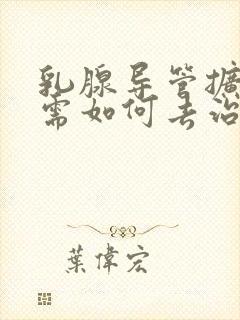 乳腺导管擴
需如何去治
葉偉宏